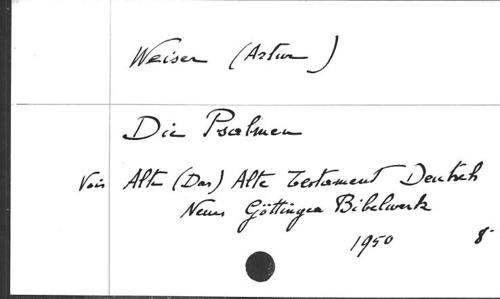 Weiser (Artur)
Die Psalmen
Vois Alte (Das) Alte Testament Deutsch
Neues Göttinger Bibelwerk
1950 8°